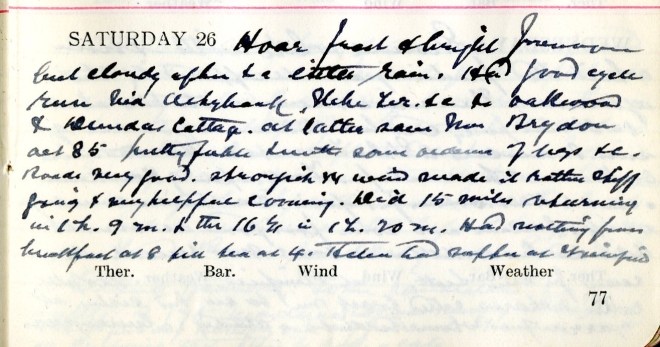 SATURDAY 26 Hoar frost & bright forenoon
but cloudy after & a little rain. Had good cycle
run via &c to Oakwood
& Dundas Cottage. At latter saw Mrs Brydon
aet 85 pretty feeble & with some of legs &c.
Roads very good. Strongish W wind made it rather stiff
going & very helpful coming. Did 15 miles returning
in 1 h. 9 m. & the 16¼ in 1 h. 20 m. Had nothing from
breakfast at 8 till tea at 4. Helen had supper at
Ther. Bar. Wind Weather
77